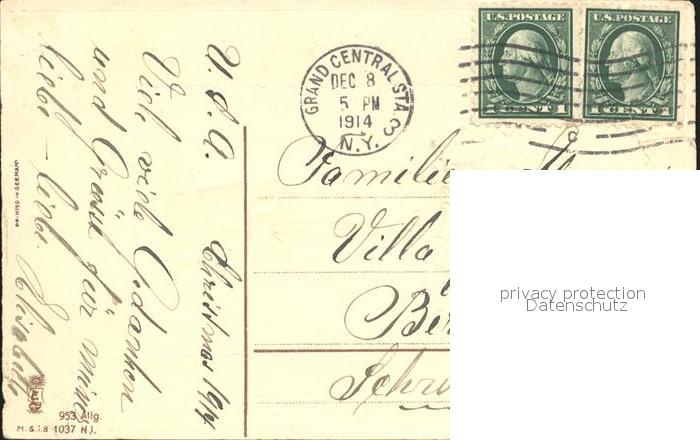 U.S. POSTAGE
1 CENT 1
U.S. POSTAGE
1 CENT 1
GRAND CENTRAL STA.
DEC 8
5 PM
1914
N.Y.
3
Familie
Villa
privacy protection
Datenschutz
U. S. A. Christmas 1914
Viele viele Gedanken
und Grüße für meine
liebe - liebe
PRINTED IN GERMANY
953 Allg.
M.S.i.B 1037 N.J.